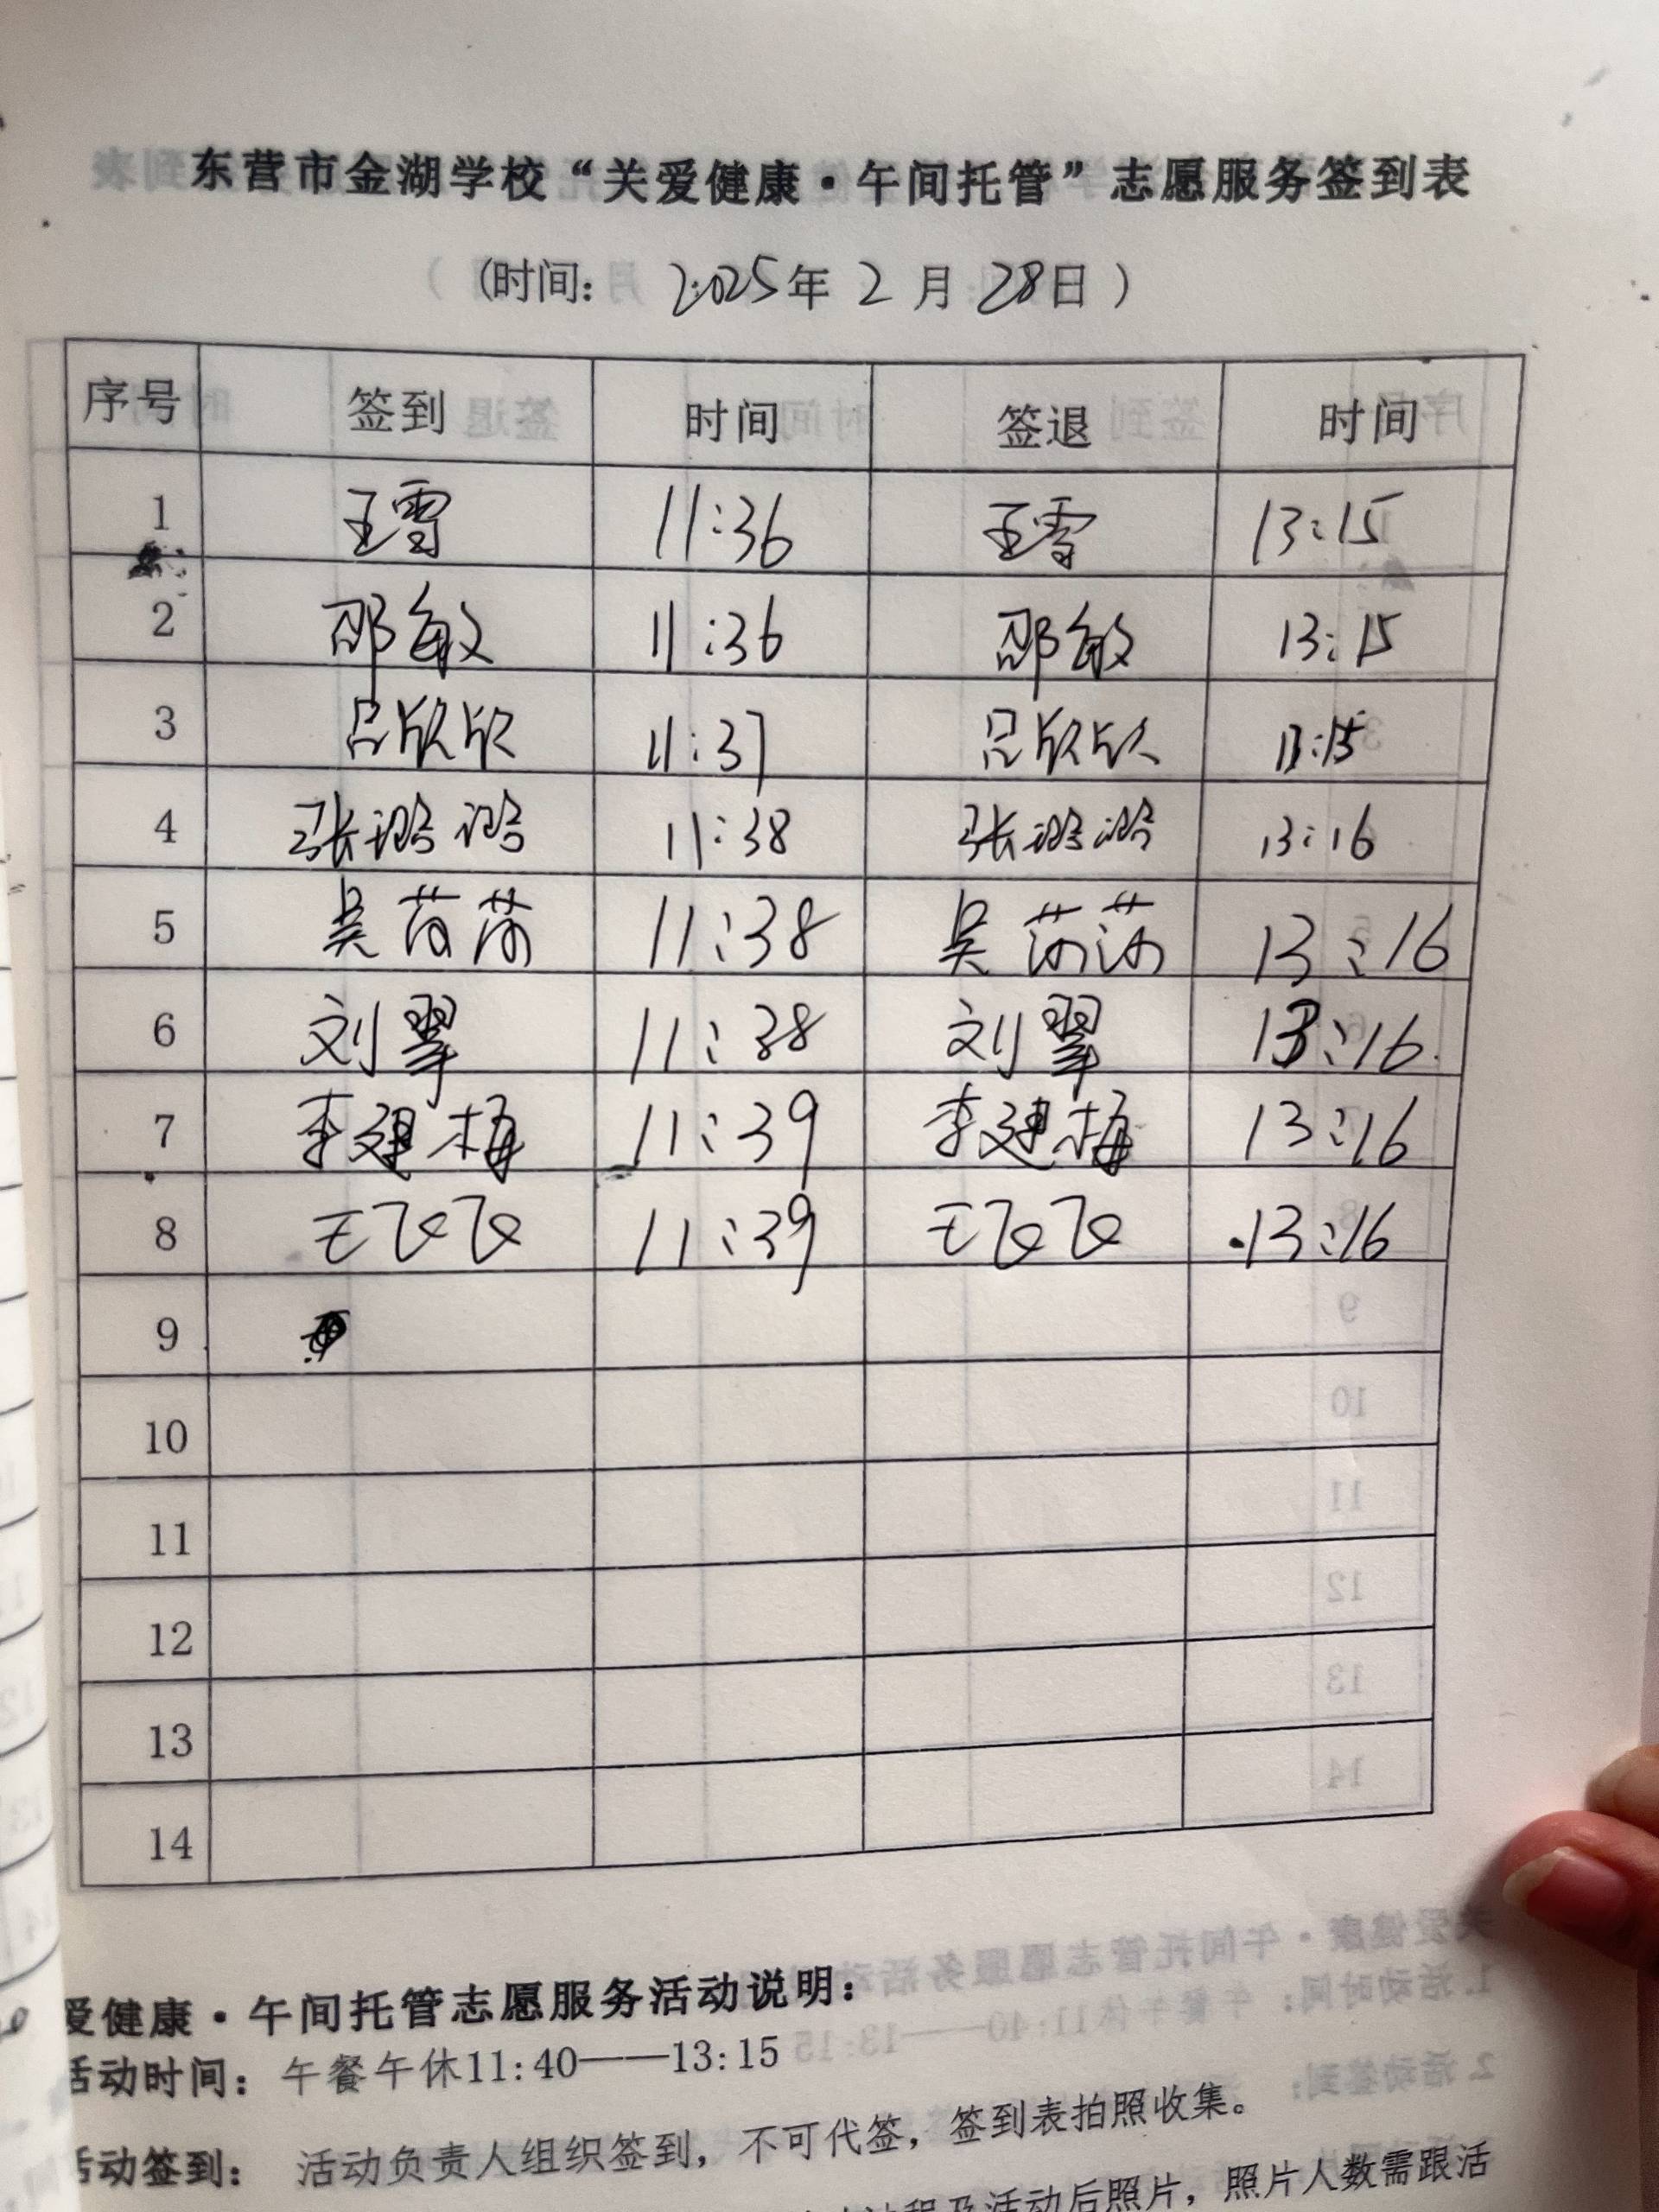 东营市金湖学校“关爱健康·午间托管”志愿服务签到表
(时间: 2025年 2 月 28日 )
序号 签到 时间 签退 时间
1 王雪 11:36 王雪 13:15
2 邵敏 11:36 邵敏 13:15
3 吕欣欣 11:37 吕欣欣 13:15
4 张璐璐 11:38 张璐璐 13:16
5 吴 11:38 吴 13:16
6 刘翠 11:38 刘翠 13:16
7 李建梅 11:39 李建梅 13:16
8 王飞飞 11:39 王飞飞 13:16
9
10
11
12
13
14
爱健康·午间托管志愿服务活动说明:
活动时间: 午餐午休11:40——13:15
活动签到: 活动负责人组织签到, 不可代签, 签到表拍照收集。
过程及活动后照片, 照片人数需跟活